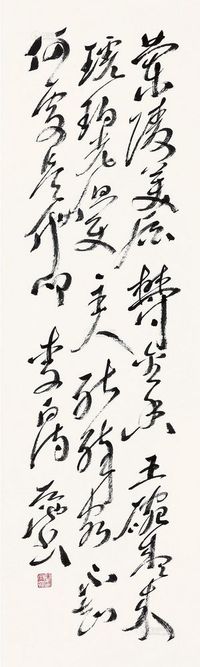 蘭陵美酒欝金香玉碗盛来
琥珀光但使主人能醉客不知
何處是他鄉李白詩